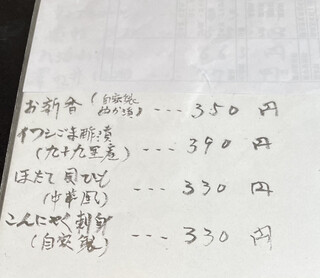 お新香(自家製ぬか漬) --- 350円
イワシごま酢漬
(九十九里産) --- 390円
ほたて貝ひも
(中華風) --- 330円
こんにゃく刺身
(自家製) --- 330円